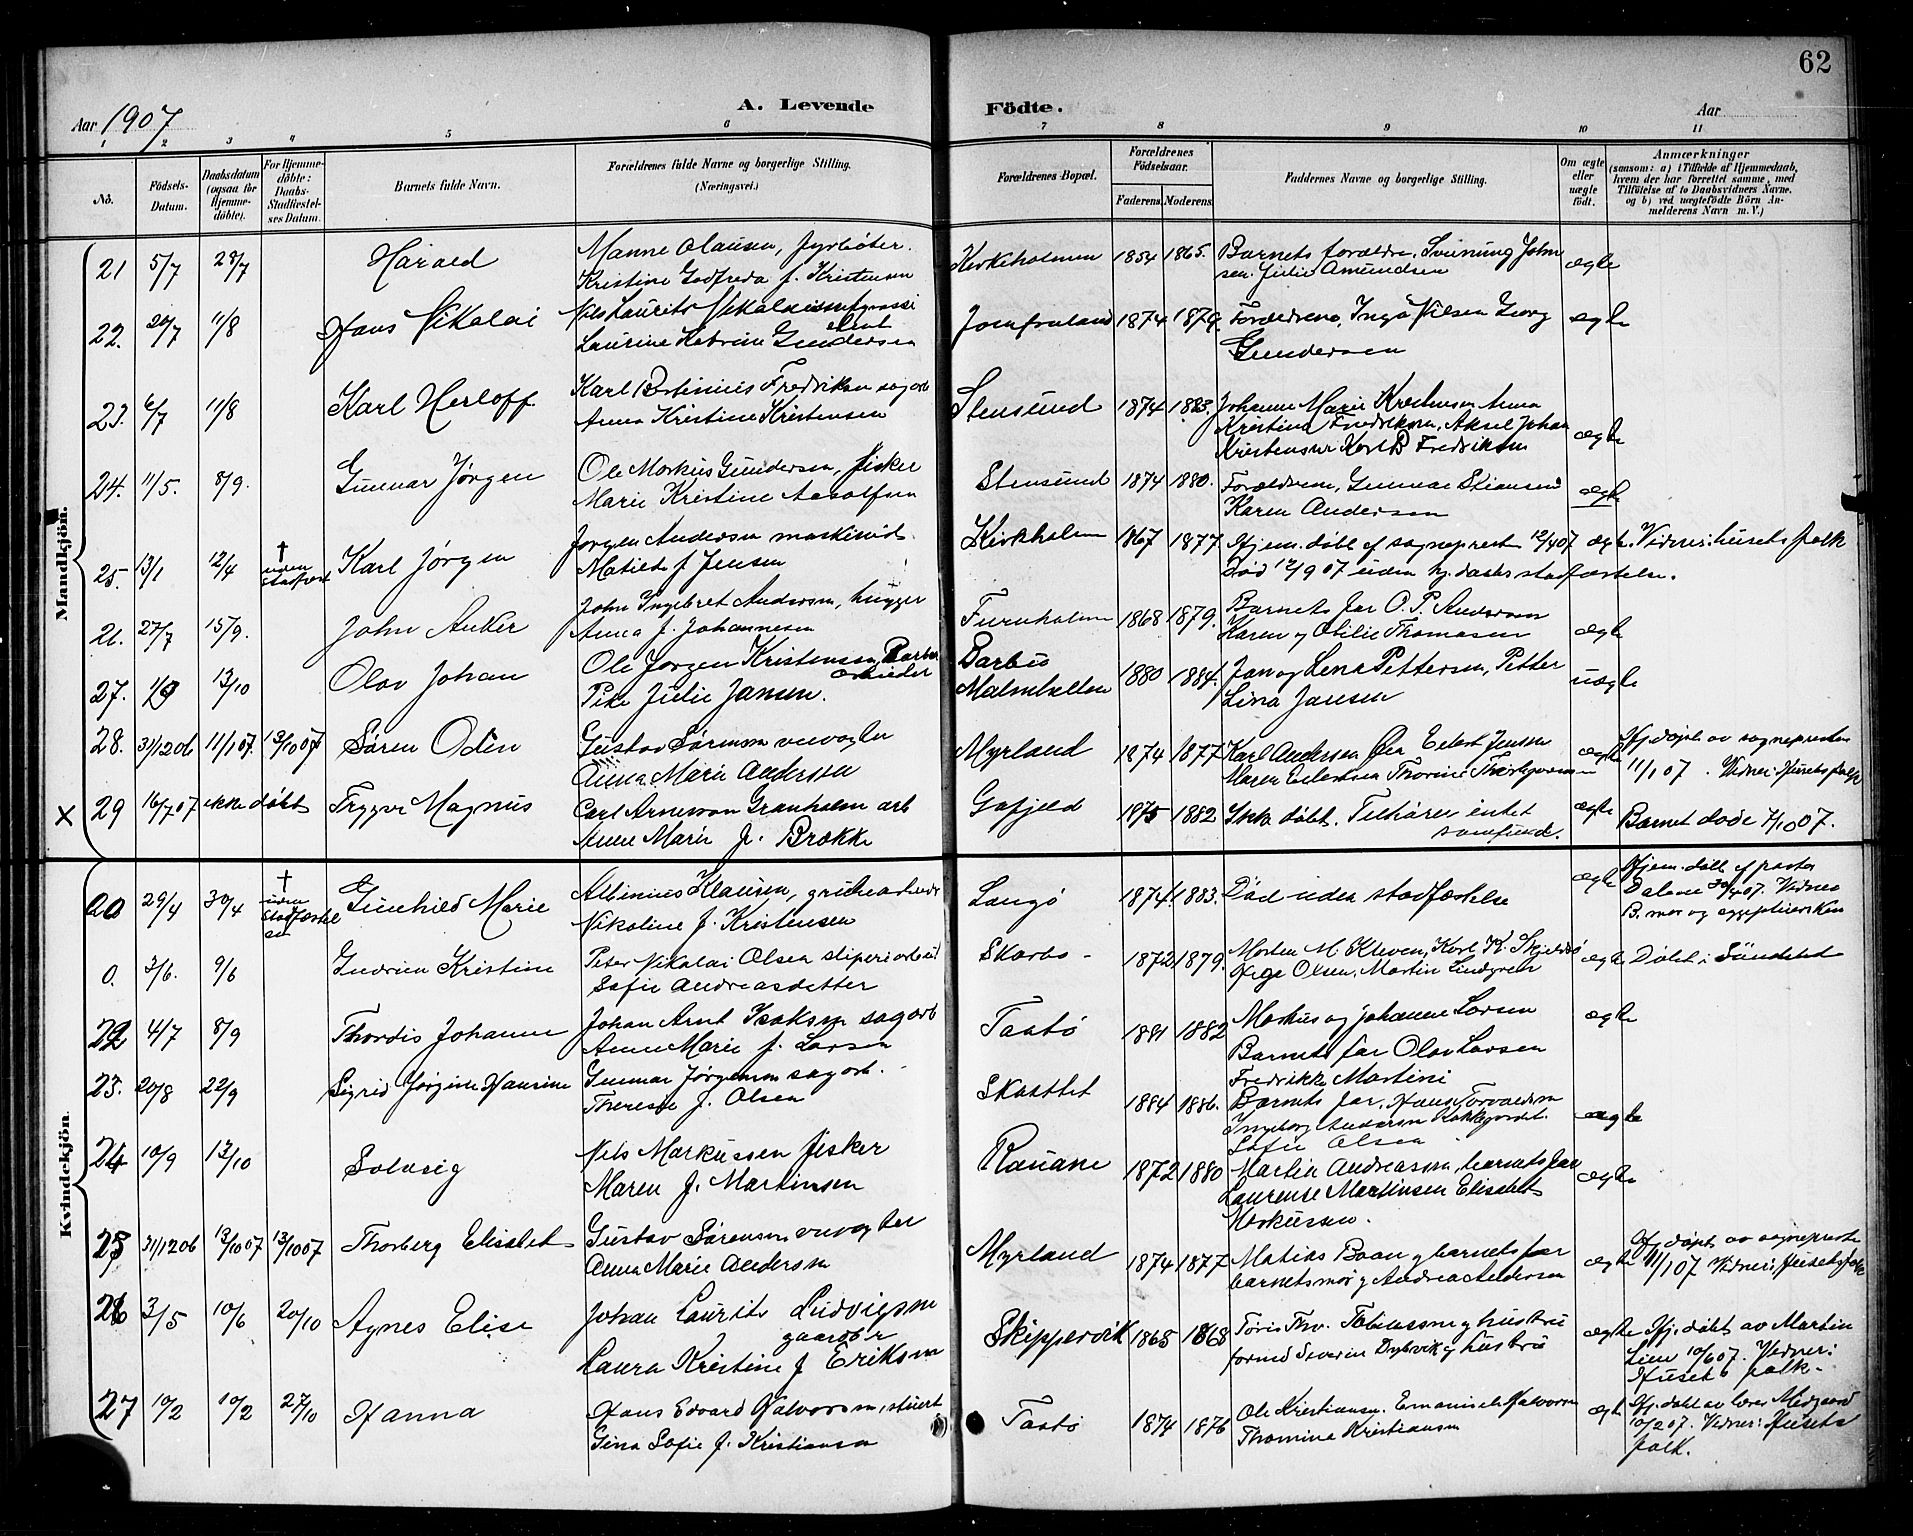 62
Aar 1907
A. Levende Födte.
Aar
1 2 3 4 5 6 7 8 9 10 11
No.
Födsels-
Datum.
Daabsdatum
(ogsaa for
Hjemme-
döbte).
For Hjemme-
döbte:
Daabs-
Stadfæstel-
ses Datum.
Barnets fulde Navn.
Forældrenes fulde Navne og borgerlige Stilling.
(Næringsvei.)
Forældrenes Bopæl.
Forældrenes
Födselsaar.
Faderens. Moderens.
Faddernes Navne og borgerlige Stilling.
Om ægte
eller
uægte
födt.
Anmærkninger
(saasom: a) i Tilfælde af Hjemmedaab,
hvem der har forrettet samme, med
Tilföielse af to Daabsvidners Navne,
og b) ved uægtefödte Börn An-
melderens Navn m. V.)
Mandkjön.
21 5/7 28/7 Harald
Manne Olausen, fyrbøter.
Kristine Godfreda f. Kristensen
Kirkeholmen 1854 1865. Barnets forældre, Sveinung John
sen. Julie Amundsen ægte
22. 20/7 11/8 Hans Nikolai
Nils Laurits Nikolaisen
Laurine Katrine Gundersen
Jomfruland 1874 1879. Forældrene, Inga Nilsen Georg
Gundersen ægte
23. 6/7 11/8 Karl Herloff
Karl Bertinius Fredriksen sagarb
Anna Kristine Kristensen
Stensund 1874 1883. Johanne Marie Kristensen Anna
Kristine Fredriksen, Aksel Johan
Kristensen Karl B Fredriksen ægte
24. 11/5. 8/9. Gunnar Jørgen
Ole Markus Gundersen, fisker
Marie Kristine Aasolfsen
Stensund 1874 1880. Forældrene, Gunnar Stiansen
Karen Andersen ægte
25. 13/1 12/4 † uden
stadfæst Karl Jørgen
Jørgen Andersen maskinist
Matilde f Jensen
Kirkholm 1867 1877 Hjem. døbt af sogneprest 12/4 07 ægte. Vidner: husets folk
Død 12/9 07 uden hj. daabs stadfæstelse.
26. 27/7 15/9. John Anker
John Ingebret Andersen, hugger
Anna f. Johannesen
Furuholmen 1868 1879. Barnets far O. P. Andersen
Karen og Otilie Thomasen ægte
27. 1/9 13/10 Olav Johan
Ole Jørgen Kristensen, Barbu
arbeider
Pike Julie Jansen.
Barbu
Malmhellen 1880 1884. Jan og Lena Pettersen, Petter
Lina Jansen uægte
28. 31/12 06 11/1 07. 13/10 07 Søren Odin
Gustav Sørensen
Anna Marie Anderssen
Myrland 1874 1877 Karl Andersen Øen Edert Jensen
ægte Hj. døpt av sognepresten
11/1 07. Vidner: Husets folk
× 29 16/7 07 ikke døbt Trygve Magnus
Carl Arnesson Granholm arb
Anne Marie f. Brokke
Gofjeld 1875 1882 Ikke døbt. Tilhører intet
samfund. ægte Barnet døde 7/10 07.
Kvindekjön.
20 29/4 30/4 † uden
stadfæstel
sen Gunhild Marie
Albinius Klausen, grubearbeider
Nikoline f. Kristensen
Langø 1874. 1883. Død uden stadfæstelse
ægte Hjem. døbt af pastor
Dalene 30/4 07. Vidner
B. mor og
0. 3/6. 9/6 Gudrun Kristine
Peter Nikolai Olsen sliperiarbeid
Sofie Andreasdatter
Skarbo - 1872 1879. Morten M. Kleven, Karl K.
Olsen, Martin Lindgren ægte Døbt i Søndeled
22 4/7 8/9 Thordis Johanne
Johan Arnt Isaksen sagarb
Anne Marie f. Larsen
Taatø 1881 1882 Markus og Johanne Larsen
Barnets far Olav Larsen
Fredrikke Martini ægte
23. 20/8 22/9 Sigrid Jørgine Hansine
Gunnar Jørgensen sagarb.
Therese f. Olsen
Skaattet 1884 1886. Barnets far, Hans Torvaldsen
Ingeborg Andersen
Sofie Olsen ægte
24 10/9 13/10 Solveig
Nils Markussen fisker
Maren f. Martinsen
Rauane 1872 1880 Martin Andreassen, barnets far
Laurense Martinsen Elisabet
Markussen. ægte
25 31/12 06 13/10 07 13/10 07 Thorberg Elisabet
Gustav Sørensen
Anna Marie Andersen
Myrland 1874 1877 Matias Boan og barnets far
barnets mor og Andrea Andersen ægte Hj. døpt av sogneprest
11/1 07 Vidner: Husets folk
26 3/5 10/6 20/10 Agnes Elise
Johan Laurits Ludvigsen
gaardbr
Laura Kristine f Eriksen
Skippervik 1865 1868 Tøris Thv. Tobiassen og hustru
formed Severin Dybvik og hustru ægte Hj. døbt av Martin
Lien 10/6 07. Vidner:
Husets folk.
27 10/2 10/2 27/10 Hanna
Hans Edvard Halvorsen, stuert
Gina Sofie f. Kristiansen
Taatø 1874 1876 Ole Kristiansen. Halvorsen
Thomine Kristiansen ægte Hj. døbt av lærer
10/2 07. Vidner: Husets
folk.